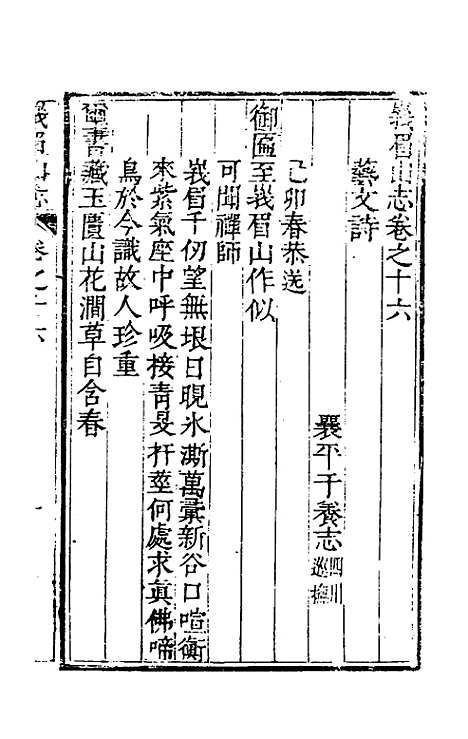 峩眉山志卷之十六
藝文詩
襄平于養志四川巡撫
己卯春恭送
御匾至峩眉山作似
可聞禪師
峩眉千仞望無垠日晛氷澌萬彚新谷口喧衡
來紫氣座中呼吸接青旻拄莖何處求真佛啼
鳥於今識故人珍重
璽書藏玉匱山花澗草自含春
峩眉山志 卷之十六 一